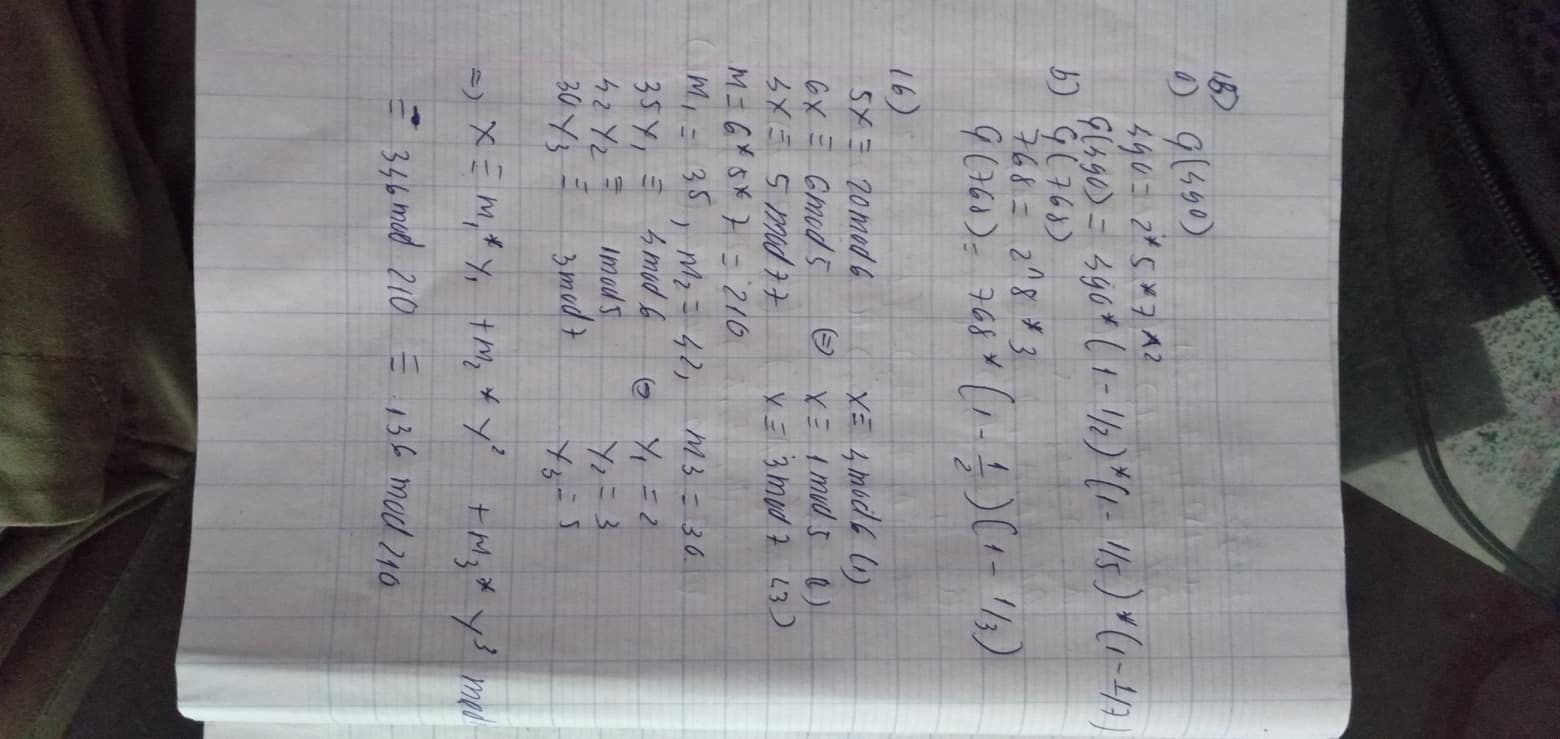 18)
a) φ(490)
490 = 2*5*7^2
φ(490) = 490*(1-1/2)*(1-1/5)*(1-1/7)
b) φ(768)
768 = 2^8*3
φ(768) = 768*(1-1/2)(1-1/3)
16)
5x ≡ 20mod6 x ≡ 4mod6 (1)
6x ≡ 6mod5 ⇔ x ≡ 1mod5 (2)
4x ≡ 5mod77 x ≡ 3mod7 (3)
M = 6*5*7 = 210
M1 = 35, M2 = 42, M3 = 30
35y1 ≡ 4mod6 ⇔ y1 = 2
42y2 ≡ 1mod5 y2 = 3
30y3 ≡ 3mod7 y3 = 5
=> x ≡ M1*y1 + M2*y2 + M3*y3 mod
≡ 346mod210 ≡ 136mod210